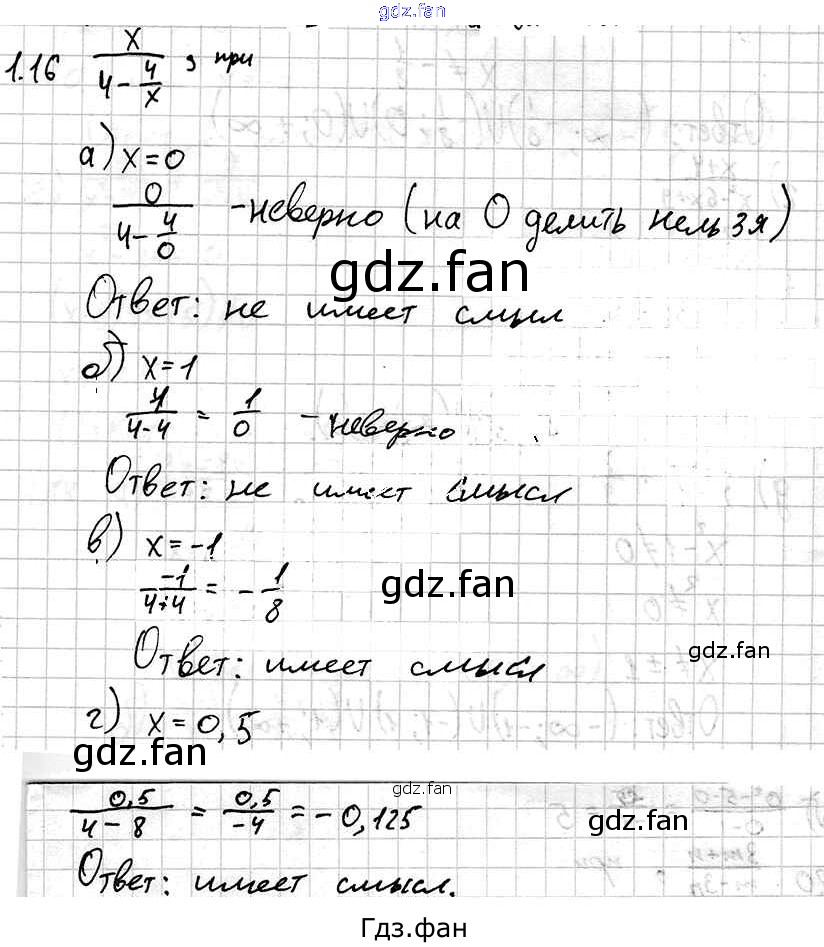 gdz.fan
1.16 x/(4 - 4/x), при
а) x = 0
0/(4 - 4/0) - неверно (на 0 делить нельзя)
gdz.fan
Ответ: не имеет смыл
б) x = 1
1/(4-4) = 1/0 - неверно
Ответ: не имеет смысл
в) x = -1
-1/(4+4) = -1/8
gdz.fan
Ответ: имеет смысл
gdz.fan
г) x = 0,5
gdz.fan
gdz.fan
0,5/(4 - 8) = 0,5/-4 = -0,125
gdz.fan
Ответ: имеет смысл.
Гдз.фан